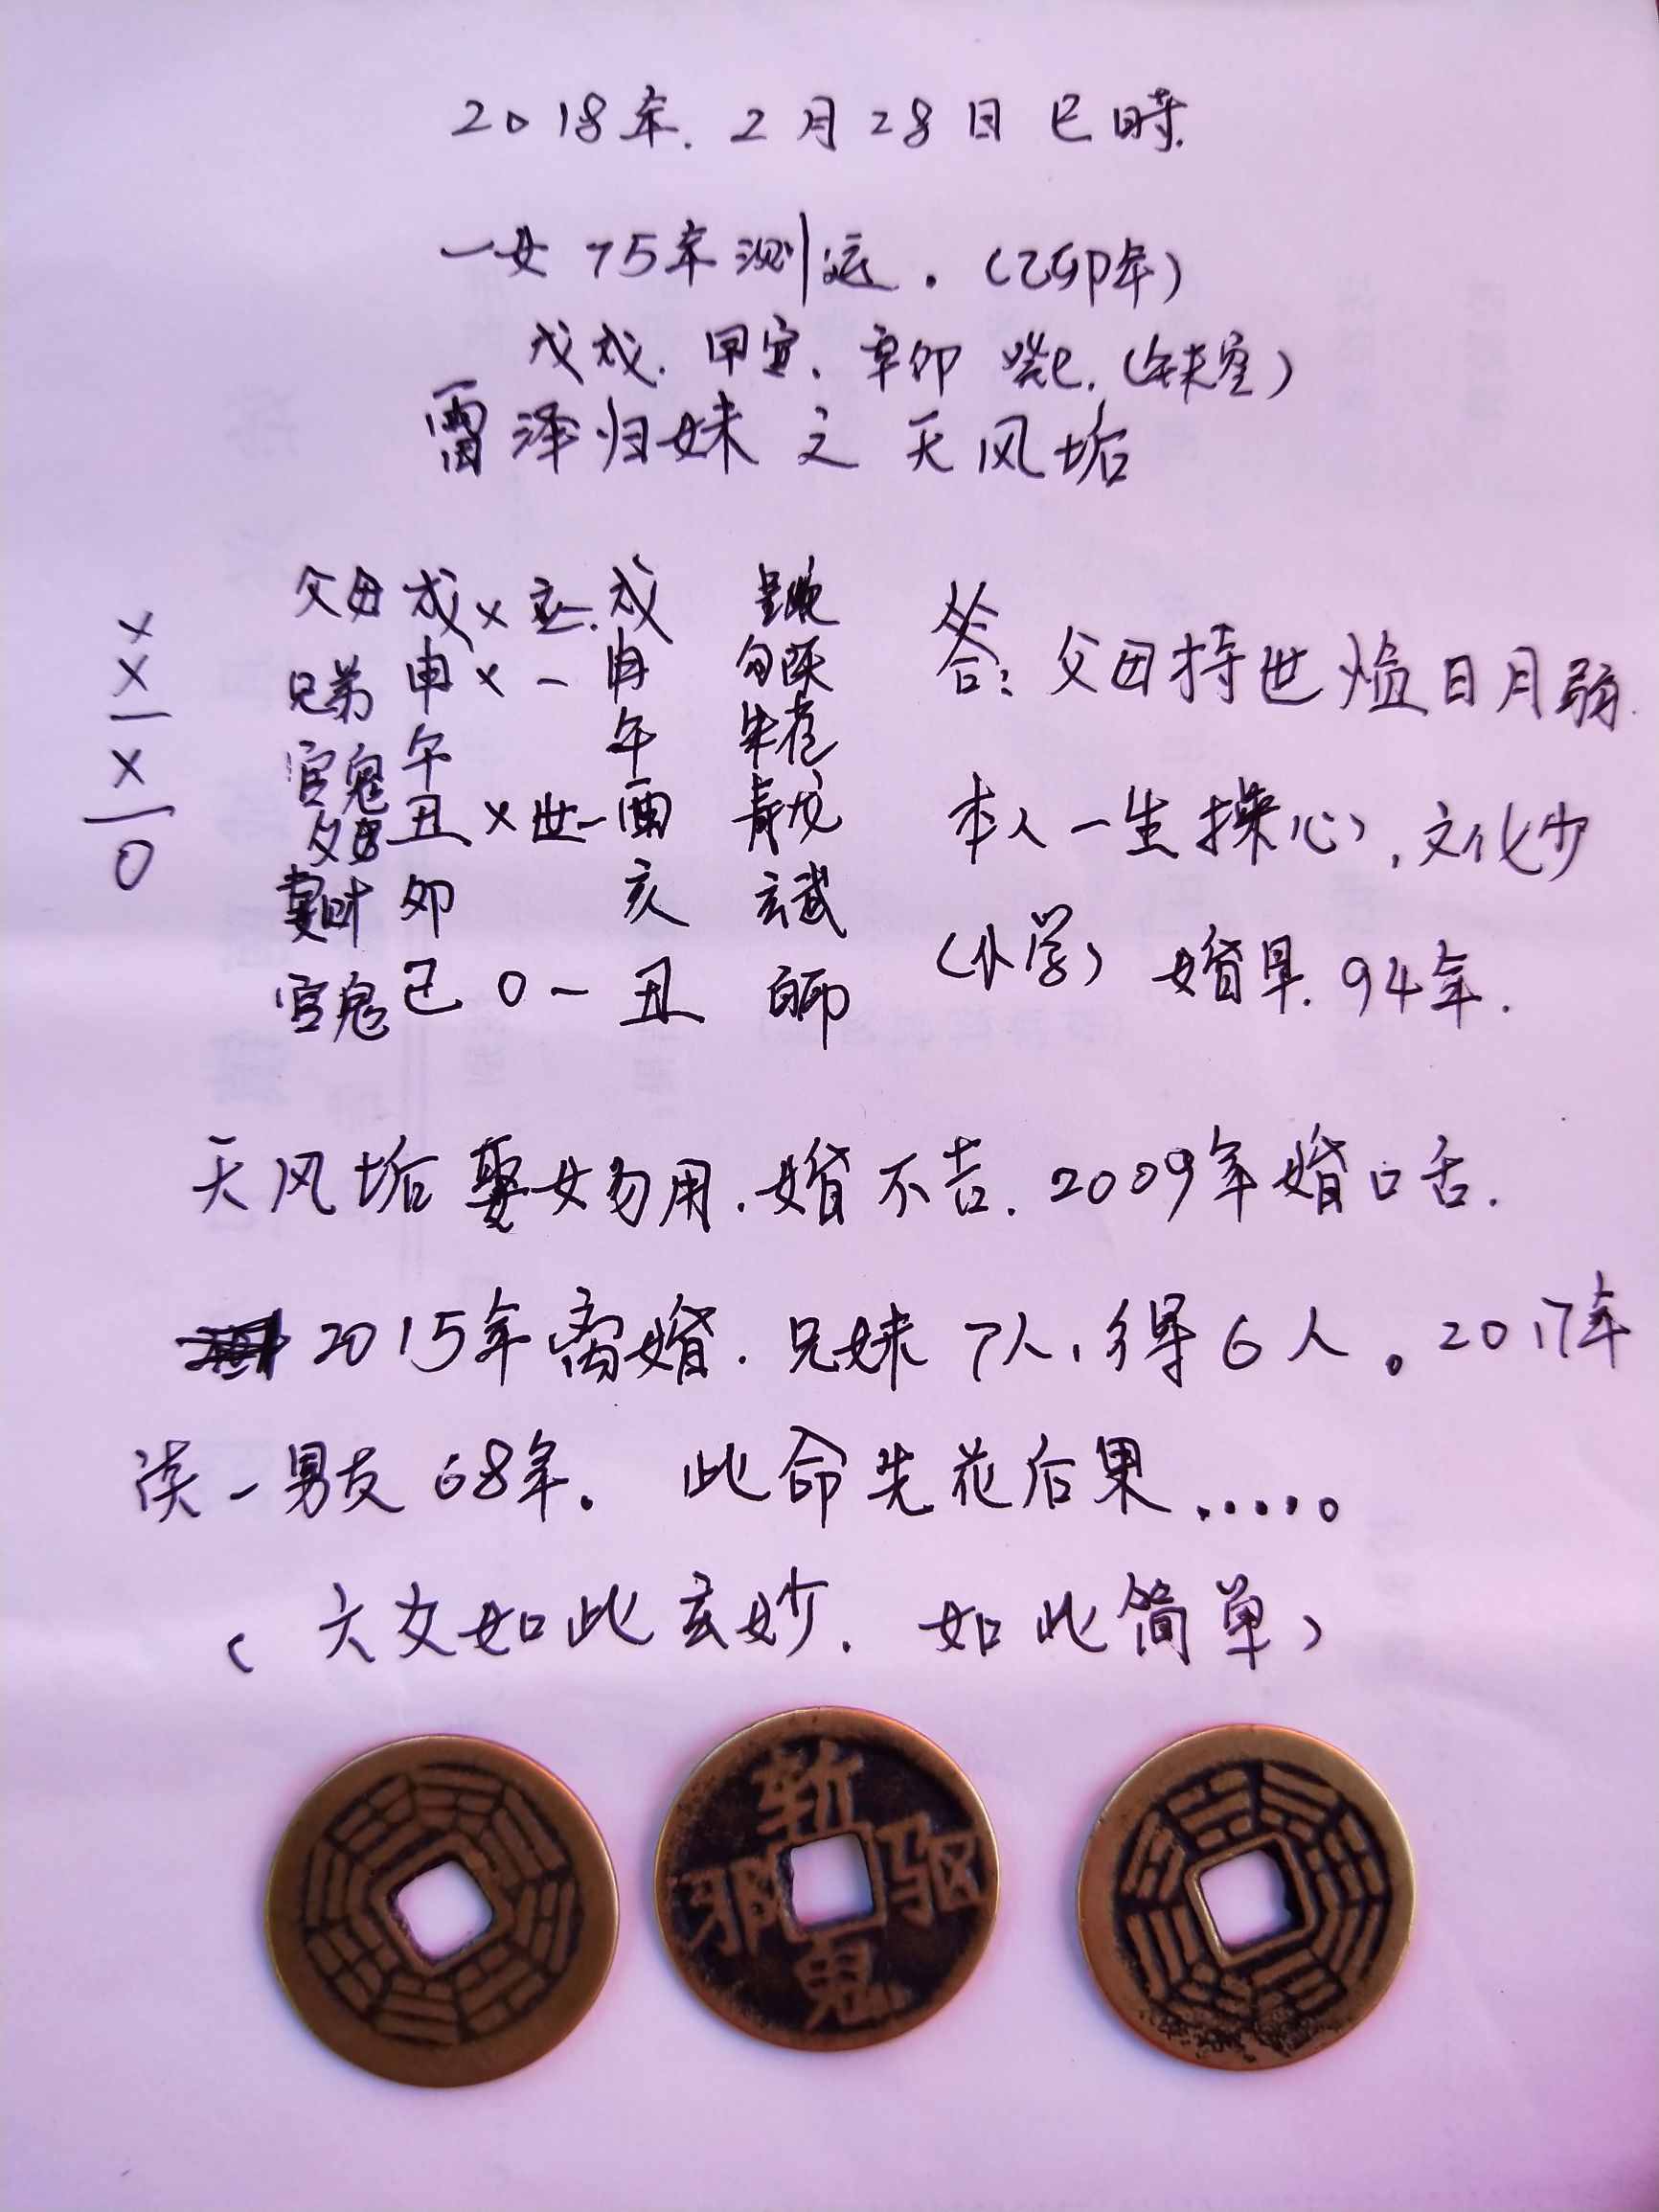 2018年.2月28日巳時.
一女75年测运.(乙卯年)
戊戌.甲寅.辛卯 癸巳.(午未空)
雷泽归妹之天风垢
父母 戌 × 应. 戌
兄弟 申 × 一 申 勾陈
官鬼 午 午 朱雀
父母 丑 × 世一 酉 青龙
妻财 卯 亥 玄武
官鬼 巳 0 一 丑 白虎
×
×
一
×
一
0
答:父母持世 临日月弱.
本人一生操心,文化少
(小学) 婚早.94年.
天风垢娶女勿用.婚不吉.2009年婚口舌.
2015年离婚.兄妹7人,得6人。2017年
谈一男友68年。此命先花后果.....。
(六爻如此玄妙.如此简单)
斩
邪 驱
鬼